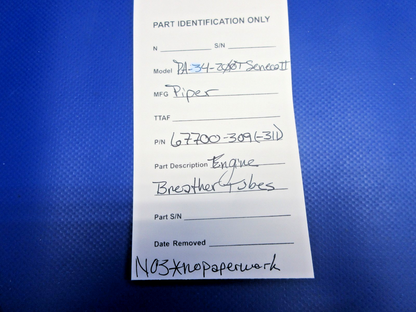 PART IDENTIFICATION ONLY
N ____________ S/N ____________
Model PA-34-200T Seneca II
MFG Piper
TTAF ____________
P/N 67700-309(-311)
Part Description Engine
Breather Tubes
Part S/N ____________
Date Removed ____________
N03*nopaperwork